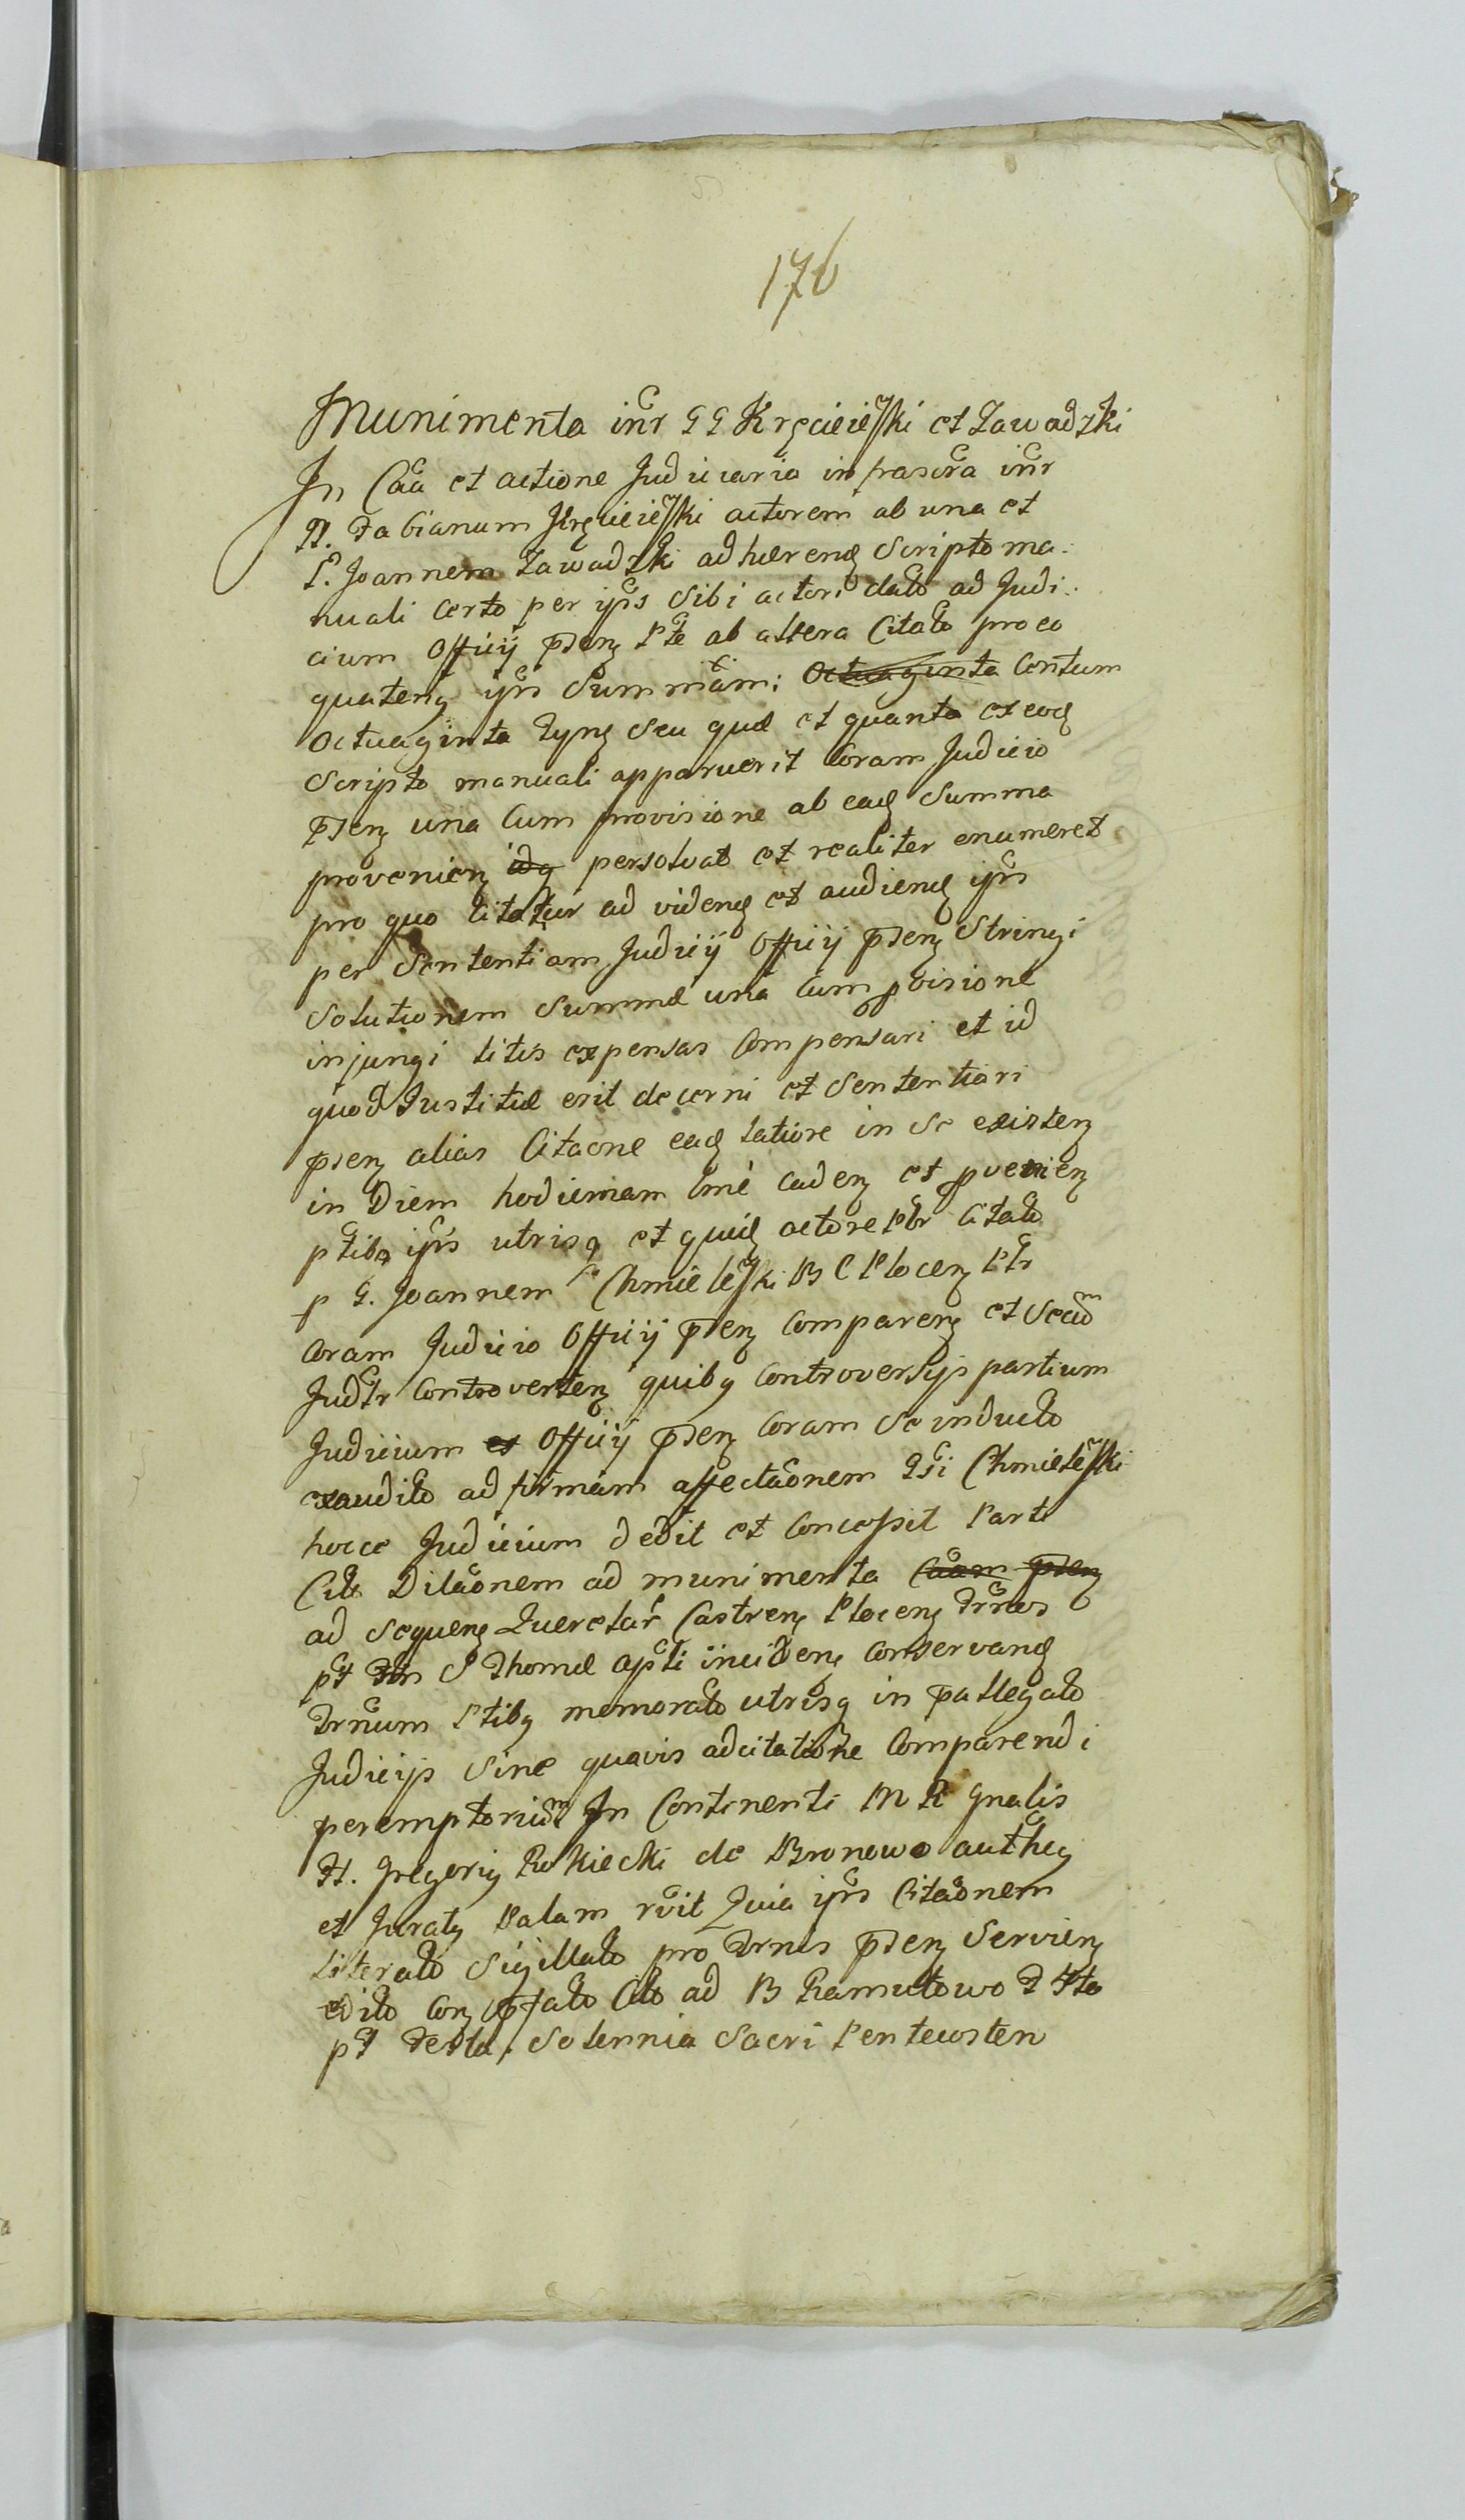 176
Munimenta inr GG Kręcieiewski et Zawadzki
In Caa et actione Judiciaria infrascra inr
N. Fabianum Kręcieiewski actorem ab una et
G. Joannem Zawadzki adhærend Scripto ma-
nuali certo per ipss sibi actori dato ad Judi-
cium Officij pnsenz Pte ab altera Citato pro eo
quatenq ipse Summam: Octuaginta Centum
Octuaginta Tynf seu quæ et quanta ex eod
Scripto manuali apparuerit Coram Judicio
pnsenz una Cum provisione ab ead Summa
provenienz idq persolvat et realiter enumeret
pro quo Citatur ad videnq et audienq ipss
per Sententiam Judicij Officij pnsenz Stringi
Solutionem Summæ una Cum pvisione
injungi litis expensas Compensari et id
quod Justitiæ erit decerni et Sententiari
pnsenz alias Citaone ead latiore in se existenz
in Diem hodiernam Cme cadenz et pvenienz
ptibq ipss utrisq et quid actore Ptr Citato
p G. Joannem Chmielewski B C Plocenz Ptr
Coram Judicio Officij pnsenz Comparenz et Secum
Judtr Controvertenz quibq Controversijs partium
Judicium et Officij pnsenz Coram se inducto
exaudito ad firmam affectaonem Gsi Chmielewski
hocce Judicium dedit et Concessit Parti
Citæ Dilaonem ad munimenta Caam pnsenz
ad Sequenz Querelar Castrenz Plocenz Trnos
pt Ftm S Thomæ Apsti incidenz Conservand
Trnum Ptibq memorato utrisq in pallegato
Judicijs Sine quavis adcitatione Comparendi
peremptorium In Continenti M R Gnalis
Ft. Gregoriq Rokiecki de Bronowo autheq
et Juratq Palam rvit Quia ipss Citaonem
literato Sigillato pro Trnis pnsenz Servienz
edito Conz Citato ad B Ramutowo F Fta
pt Festa Solennia Sacri Pentecosten